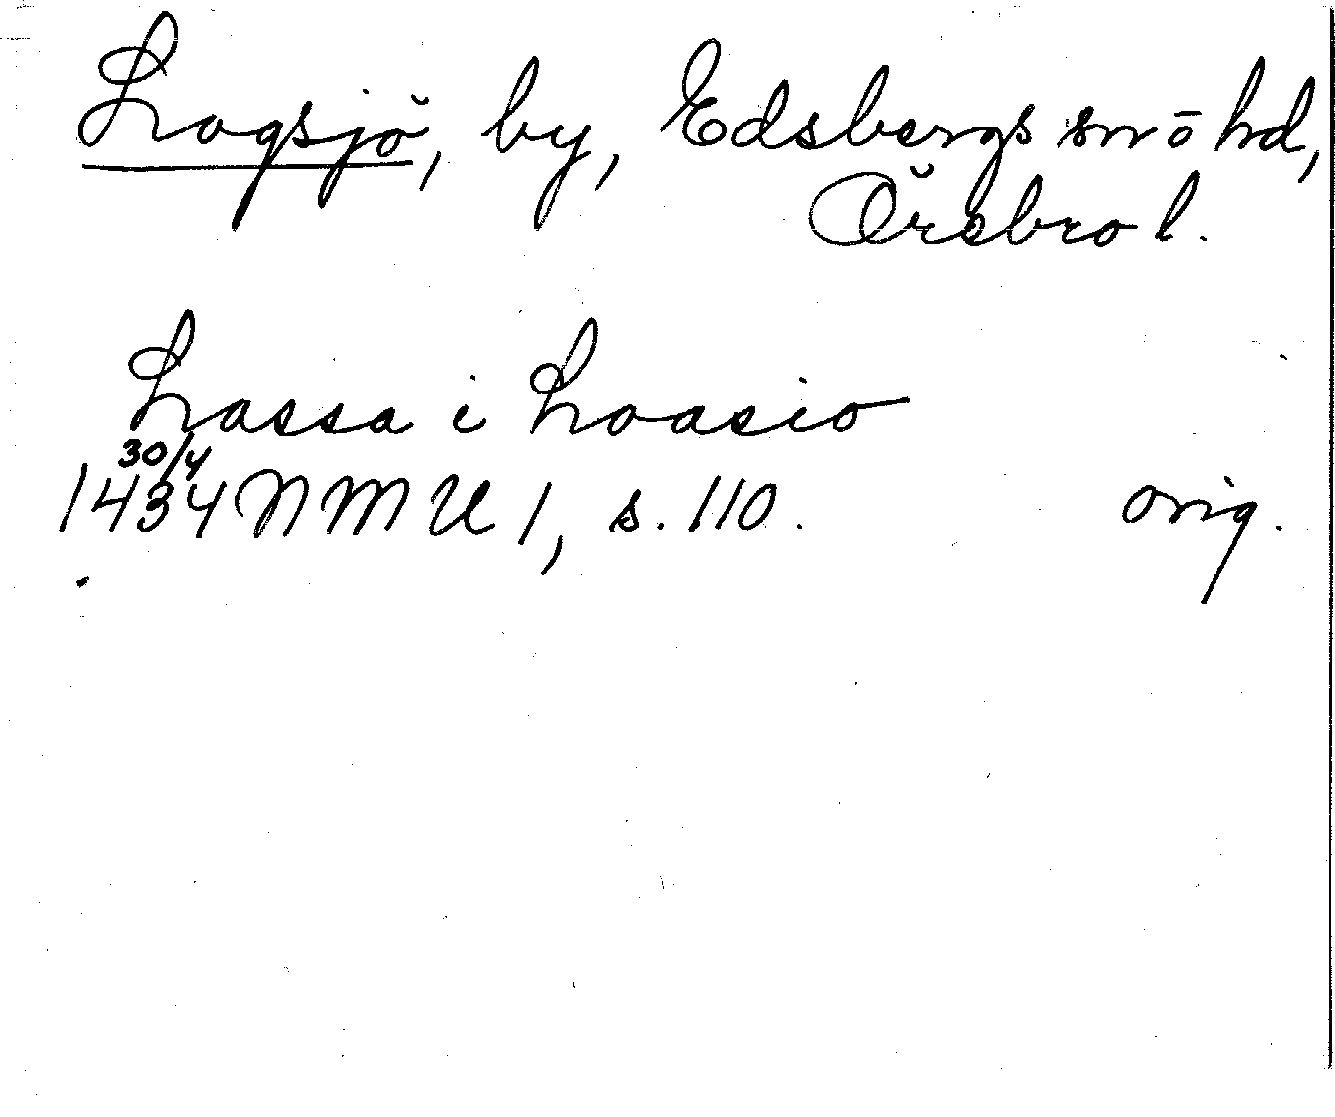 Logsjö, by, Edsbergs sn o hd,
Örebro l.
Lassa i Loasio
30/4
1434 NMU 1, s. 110. orig.